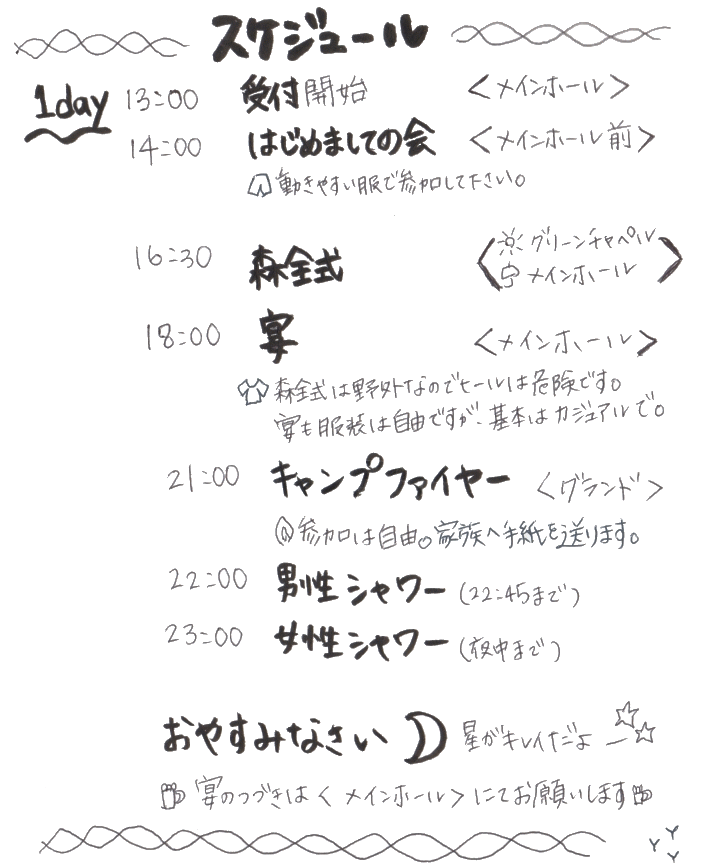 スケジュール
1day 13:00 受付開始 <メインホール>
14:00 はじめましての会 <メインホール前>
動きやすい服で参加して下さい。
16:30 森全式 <グリーンチャペル
メインホール>
18:00 宴 <メインホール>
森全式は野外なのでヒールは危険です。
宴も服装は自由ですが、基本はカジュアルで。
21:00 キャンプファイヤー <グランド>
参加は自由。家族へ手紙を送ります。
22:00 男性シャワー (22:45まで)
23:00 女性シャワー (夜中まで)
おやすみなさい 星がキレイだよ
宴のつづきは<メインホール>にてお願いします